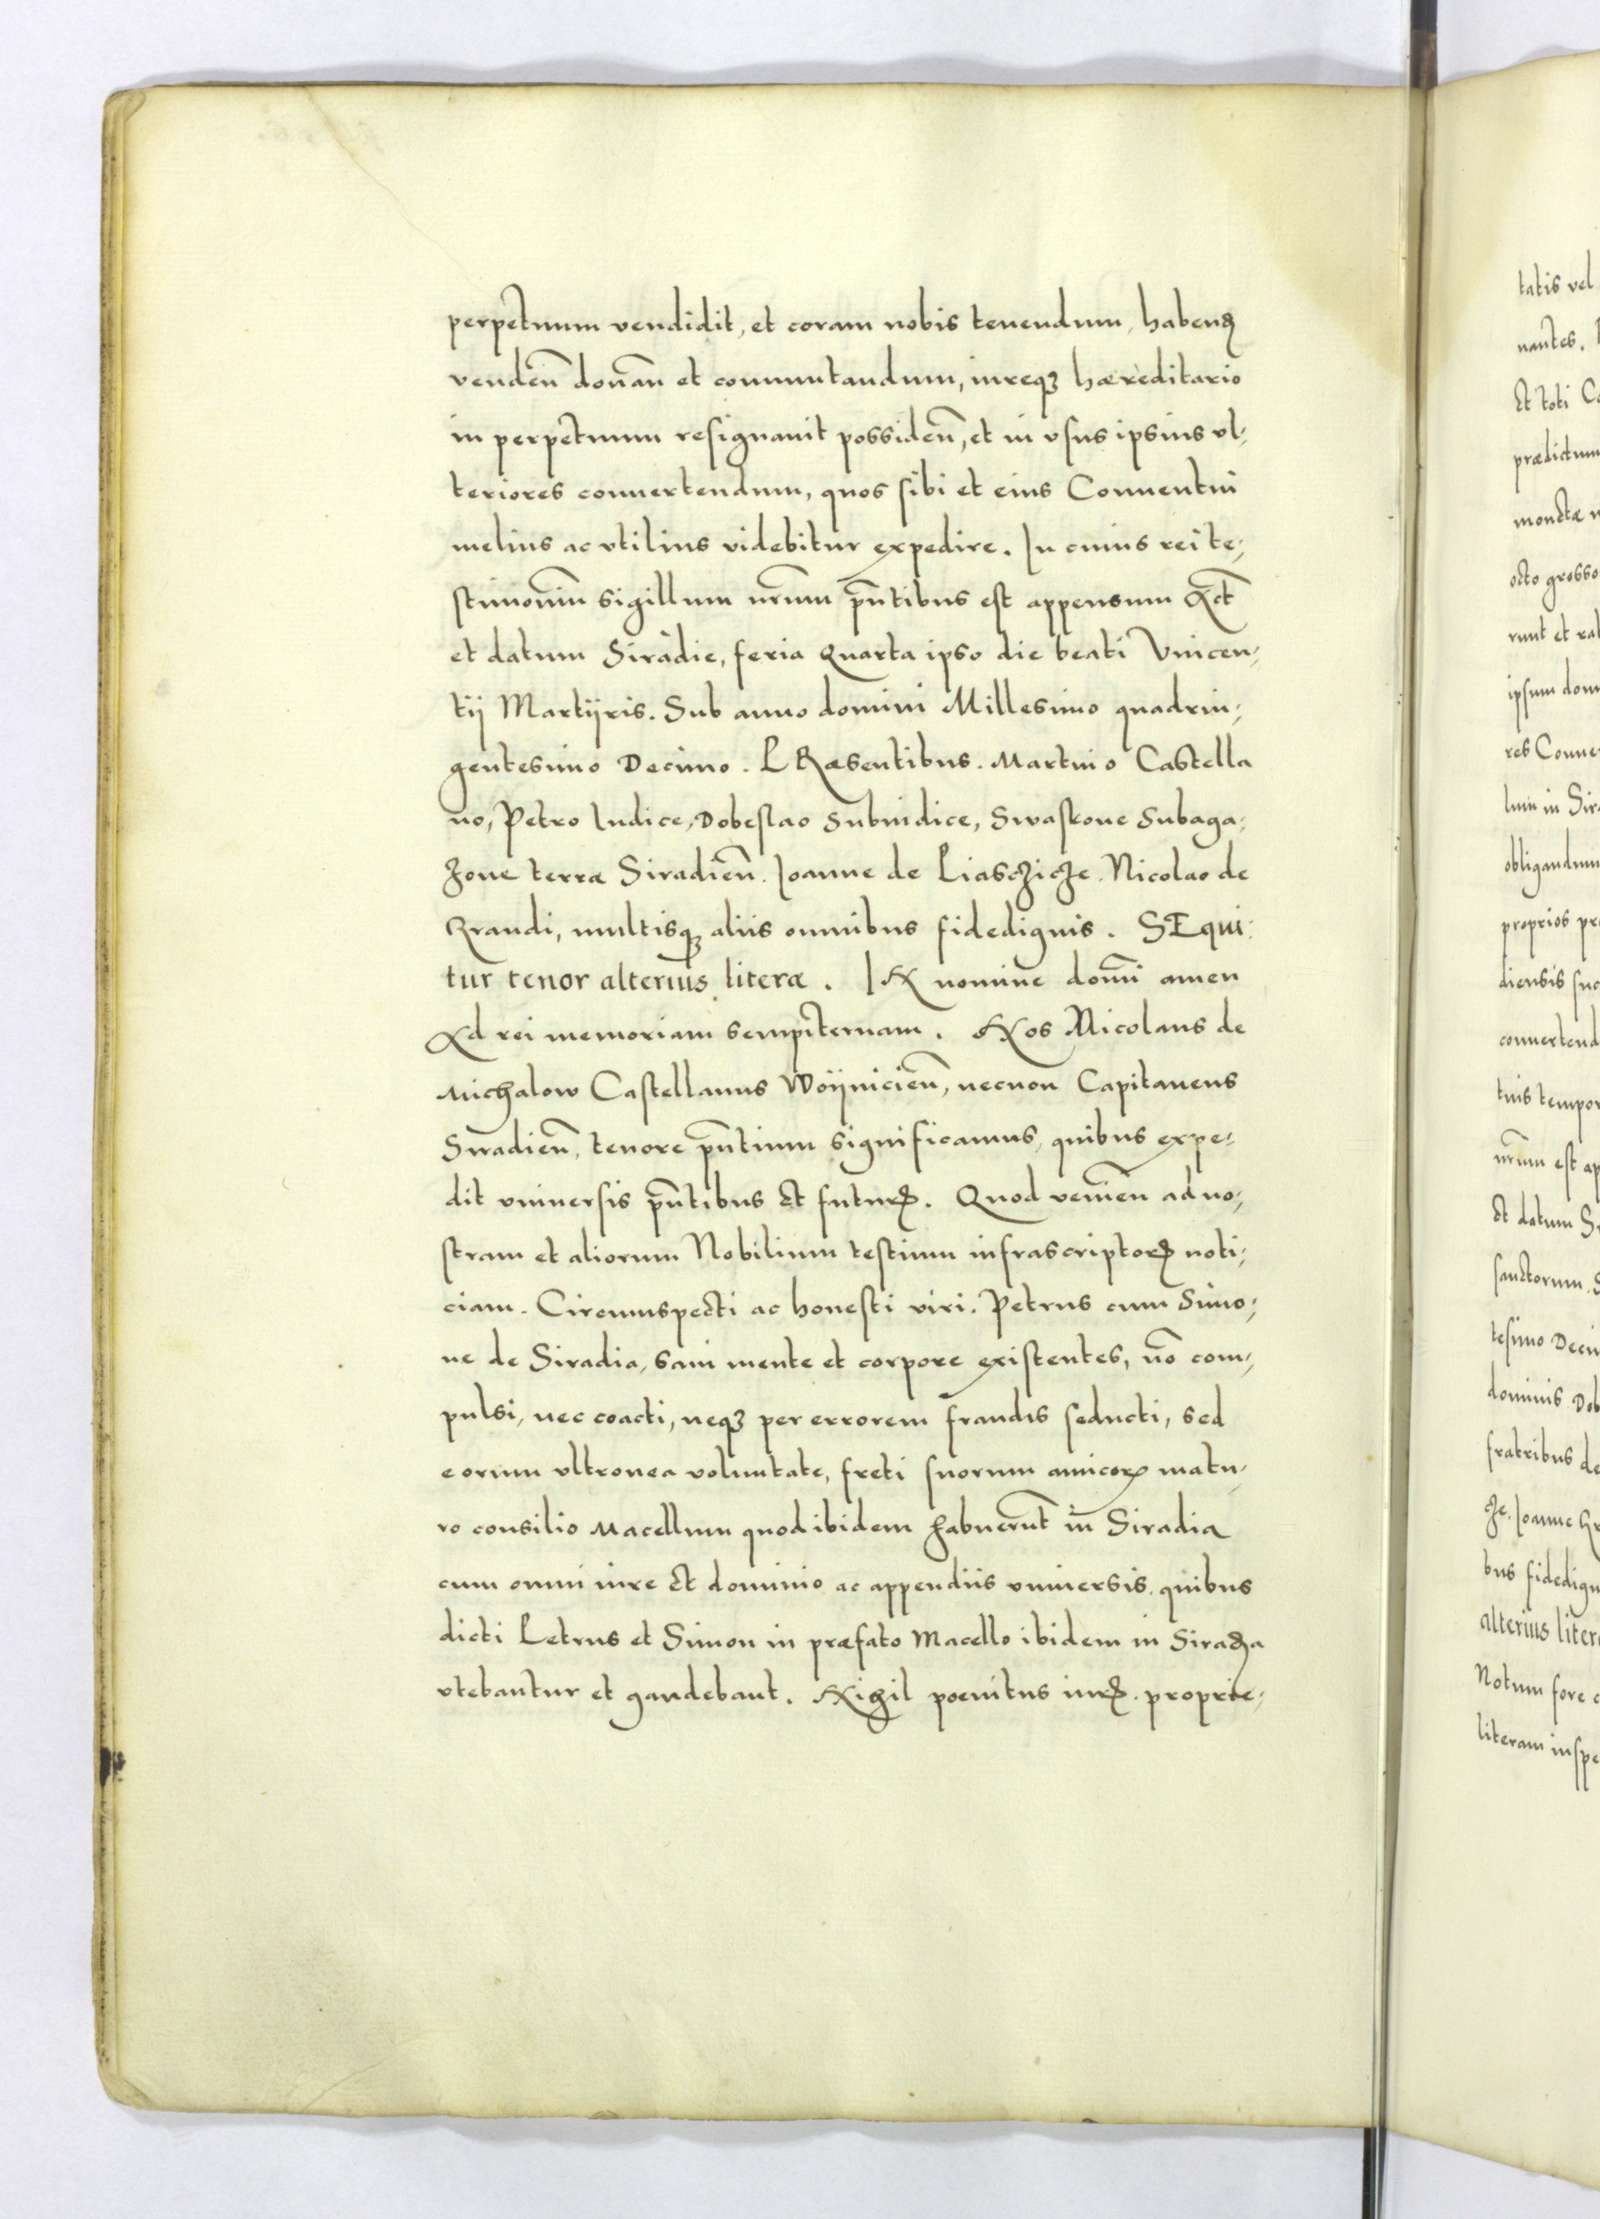 perpetuum vendidit, et coram nobis tenendum, habenꝗ
vendeñ donañ et commutandum, iureqꝫ hæreditario
in perpetuum resignauit possideñ, et in vsus ipsius vl,
teriores conuertendum, quos sibi et eius Conuentui
melius ac vtilius videbitur expedire. In cuius rei te,
stimoniũ sigillum nr̃um pñtibus est appensum Act̃
et datum Siradie, feria Quarta ipso die beati Vincen,
tij Martijris. Sub anno domini Millesimo quadrin,
gentesimo Decimo. PRæsentibus. Martino Castella
no, Petro Iudice, Dobeslao Subiudice, Swaskone Subaga,
zone terræ Siradieñ. Ioanne de Liasczicze. Nicolao de
Krandi, multisqꝫ aliis omnibus fidedignis. SEqui,
tur tenor alterius literæ. IN nomine domĩ amen
Ad rei memoriam sempiternam. Nos Nicolaus de
Michalow Castellanus Woijnicieñ, necnon Capitaneus
Siradieñ, tenore pñtium significamus, quibus expe,
dit vniuersis pñtibus et futurꝶ. Quod venieñ ad no,
stram et aliorum Nobilium testium infrascriptorꝶ noti,
ciam. Circumspecti ac honesti viri. Petrus cum Simo,
ne de Siradia, sani mente et corpore existentes, nõ com,
pulsi, nec coacti, neqꝫ per errorem fraudis seducti, sed
eorum vltronea voluntate, freti suorum amicorꝶ matu,
ro consilio Macellum quod ibidem habuerũt in Siradia
cum omni iure et dominio ac appendiis vniuersis, quibus
dicti Petrus et Simon in præfato Macello ibidem in Siradia
vtebantur et gaudebant. Nihil poenitus iurꝶ. proprie,
tatis vel
nantes.
Et toti
prædictum
octo grosso
runt et
ipsum
res
lum in
obligandum
proprios
diensis
conuertend
tuis tempor
nr̃um est
et datum
sanctorum.
tesimo
dominis
fratribus de
Ioanne
bus fidedign
alterius
Notum fore
literam